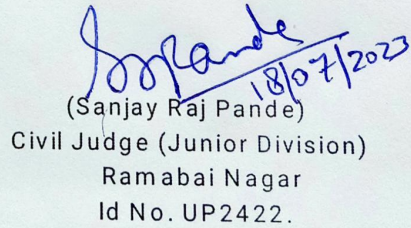 SRPande
18/07/2023
(Sanjay Raj Pande)
Civil Judge (Junior Division)
Ramabai Nagar
Id No. UP2422.